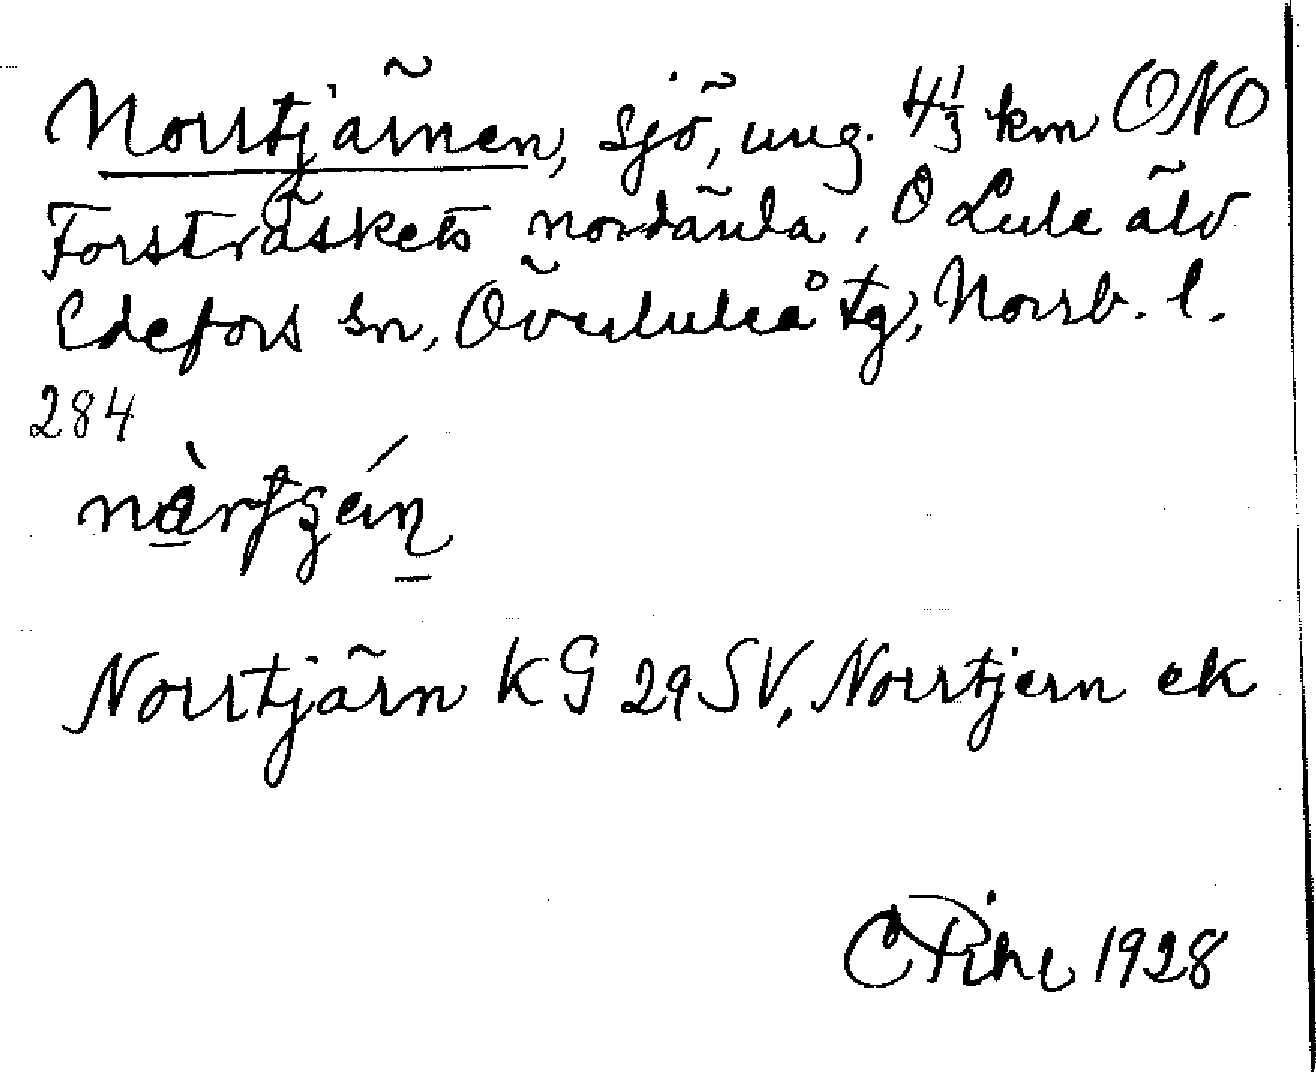 Norrtjärnen, sjö, ung. 4 1/3 km ONO
Forsträskets nordända, O Lule älv
Edefors sn, Överluleå tg, Norrb. l.
284
Norrtjärn KG 29 SV, Norrtjern ek
C Pihl 1928